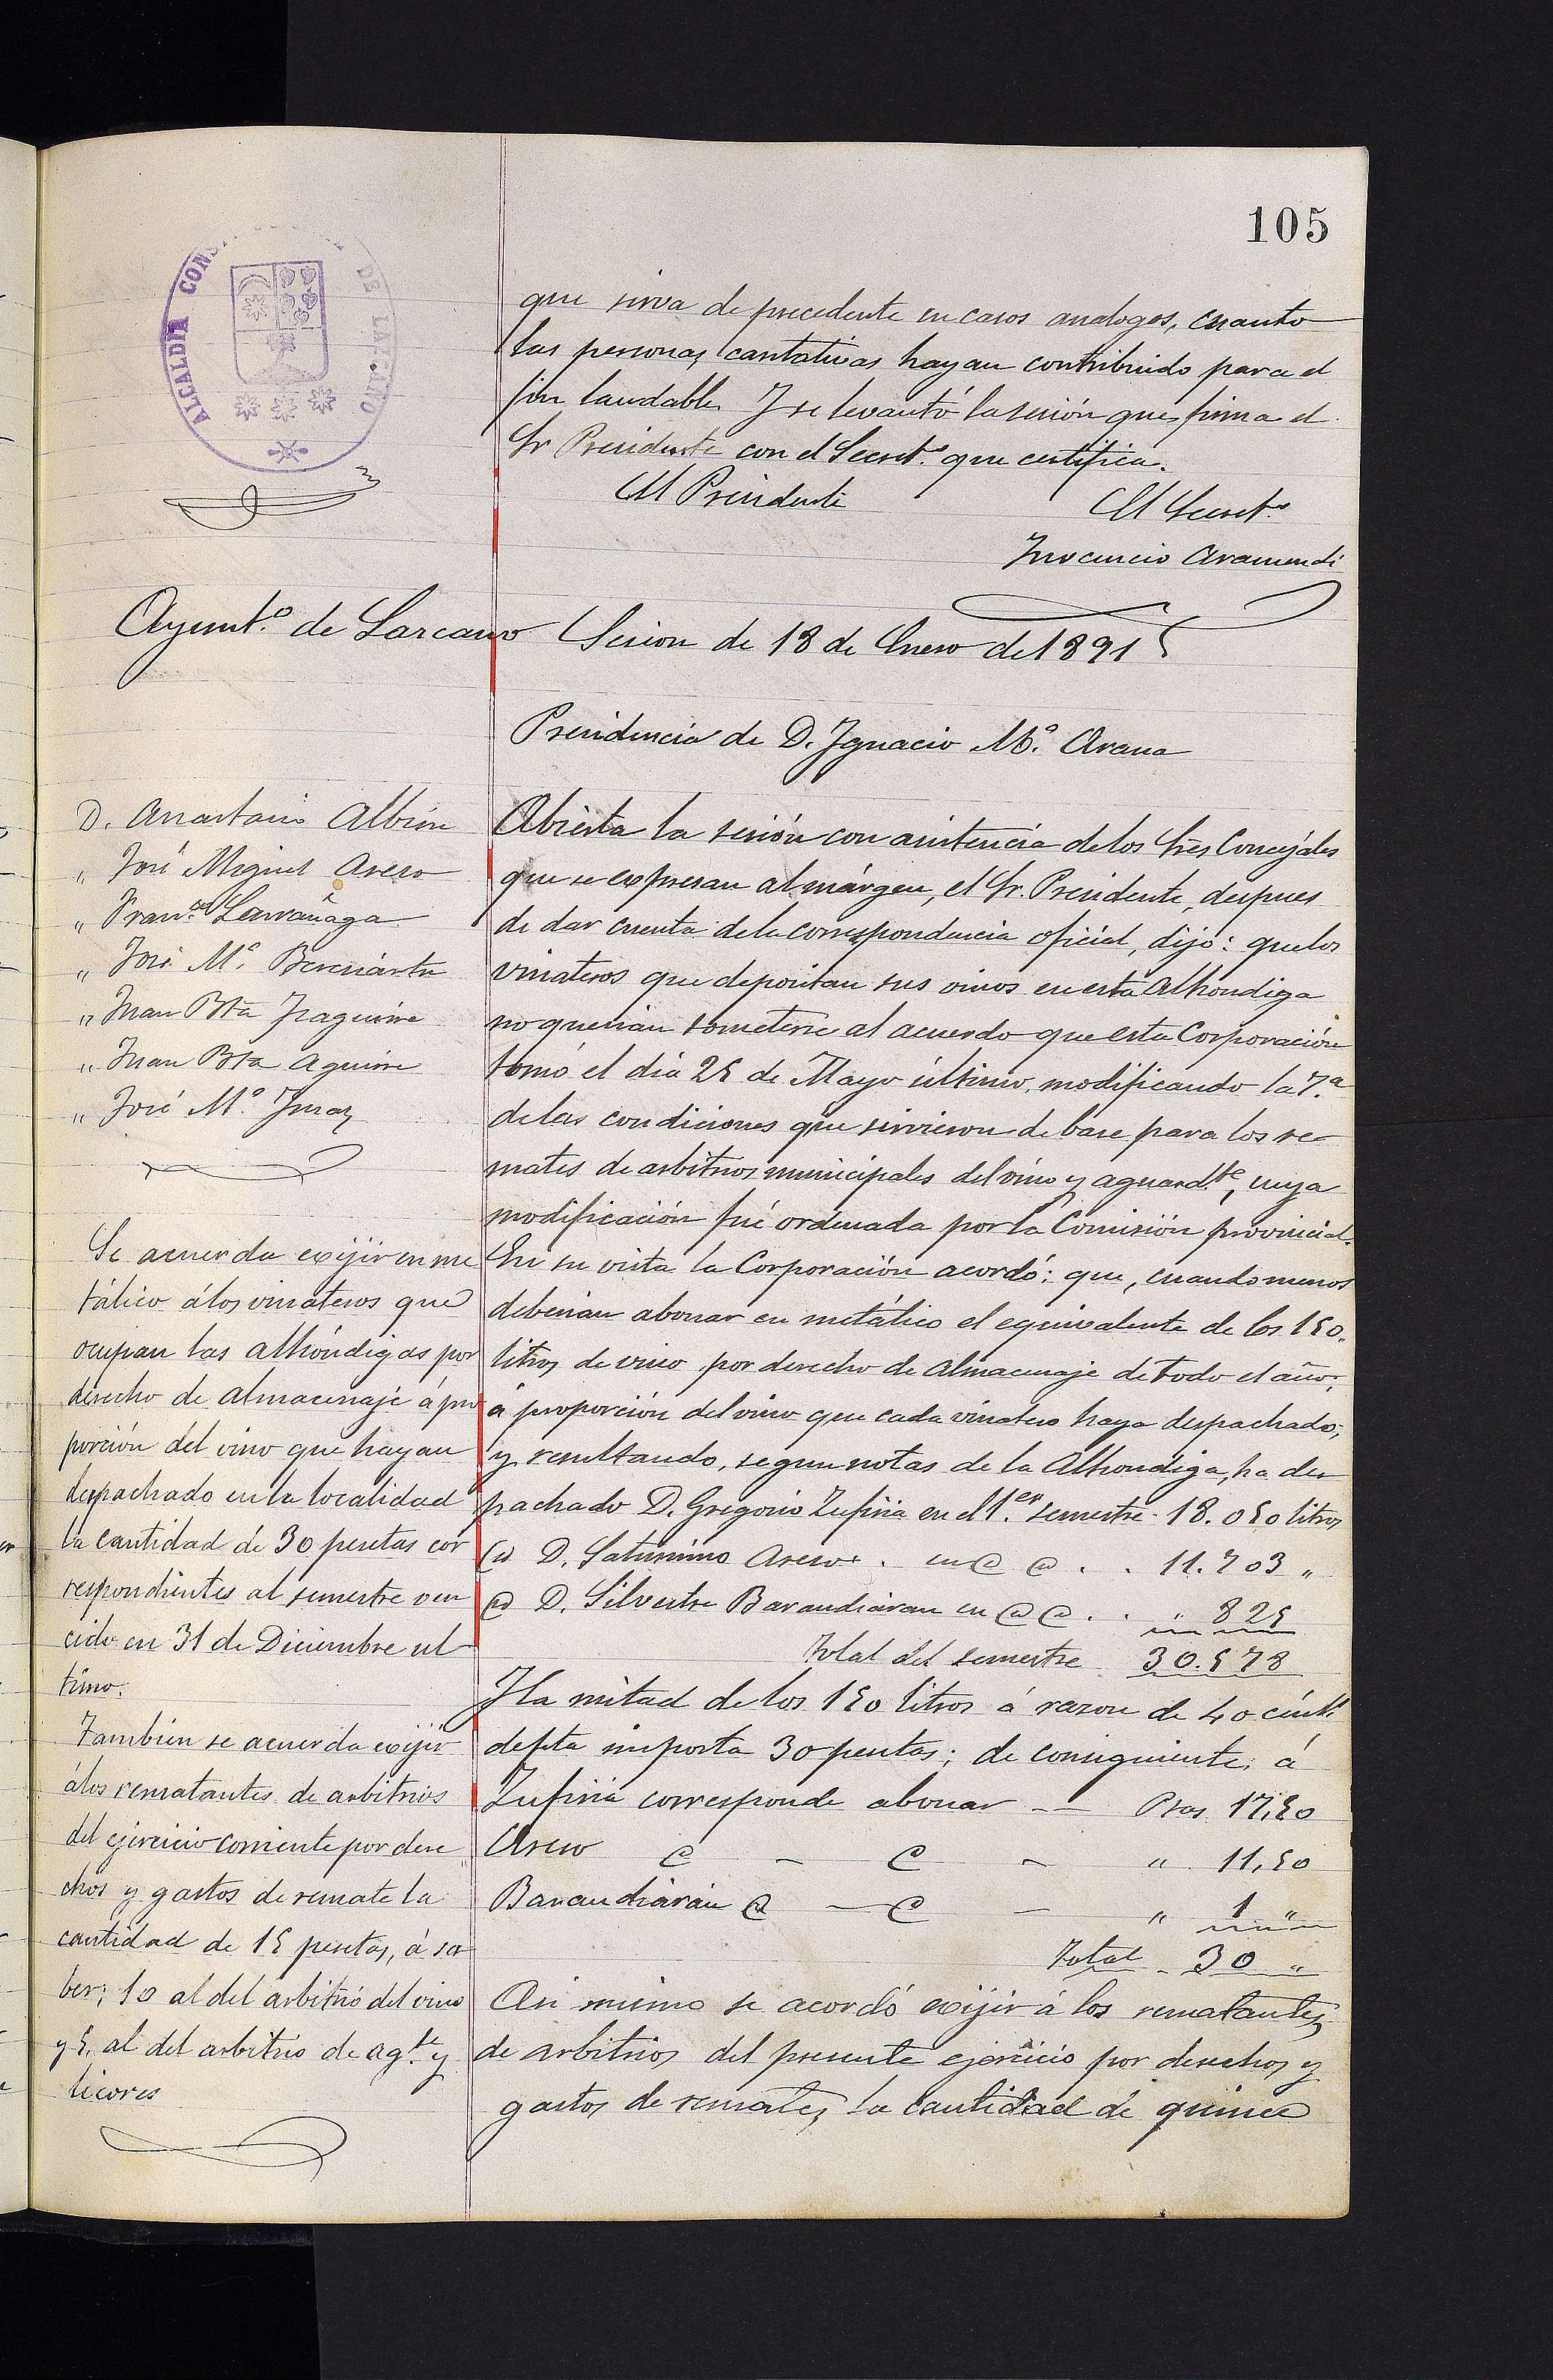 105
ALCALDIA CONSTITUCIONAL DE LAZCANO
que sirva de precedente en casos analogos, cuanto
las personas caritativas hayan contribuido para el
fin laudable. Y se levantó la sesión que firma el
Sr Presidente con el Secret.º que certifica.
El Presidente
El Secret.º
Inocencio Aramendi
Ayunt.º de Lazcano
Sesion de 18 de Enero de 1891
Presidencia de D. Ignacio M.ª Arana
D. Anastasio Albisu
„ José Miguel Aseso
„ Fran.co Larrañaga
„ José M.ª Bereciartu
„ Juan Bta Izaguirre
„ Juan Bta Aguirre
„ José M.ª Imaz
Se acuerda exijir en me
tálico á los vinateros que
ocupan las alhóndigas por
derecho de almacenaje á pro
porción del vino que hayan
despachado en la localidad
la cantidad de 30 pesetas cor
respondientes al semestre ven
cido en 31 de Diciembre ul
timo.
Tambien se acuerda exijir
á los rematantes de arbitrios
del ejercicio corriente por dere
chos y gastos de remate la
cantidad de 15 pesetas, á sa
ber; 10 al del arbitrio del vino
y 5, al del arbitrio de ag.te y
licores
Abierta la sesión con asistencia de los Sres Concejales
que se expresan al márgen, el Sr. Presidente, despues
de dar cuenta de la correspondencia oficial, dijo: que los
vinateros que depositan sus vinos en esta Alhondiga
no querian someterse al acuerdo que esta Corporación
tomó el dia 25 de Mayo último, modificando la 7.ª
de las condiciones que sirvieron de base para los re-
mates de arbitrios municipales del vino y aguard.te, cuya
modificación fué ordenada por la Comisión provincial.
En su vista la Corporación acordó: que, cuando menos
deberian abonar en metálico el equivalente de los 150
litros de vino por derecho de almacenaje de todo el año,
á proporción del vino que cada vinatero haya despachado;
y resultando, segun notas de la Alhondiga, ha des
pachado D. Gregorio Zufiria en el 1.er semestre 18.050 litros
Id D. Saturnino Aseso . en @ @ . . 11.703 „
Id D. Silvestre Barandiaran en @ @ . . „ 825
Total del semestre 30.578
Y la mitad de los 150 litros á razon de 40 cénts
de pta importa 30 pesetas; de consiguiente, á
Zufiria corresponde abonar -- Ptas 17,50
Aseso @ - @ - „ 11,50
Barandiarán @ - @ - „ 1 „
Total - 30 „
Asi mismo se acordó exijir á los rematantes
de arbitrios del presente ejercicio por derechos y
gastos de remates, la cantidad de quince